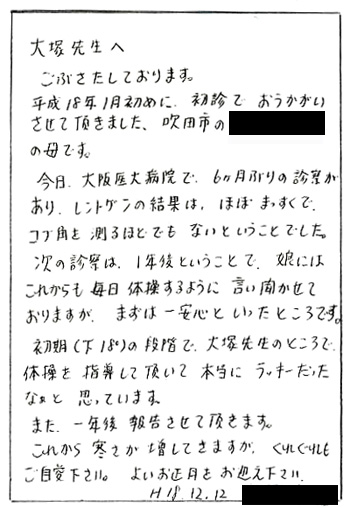 大塚先生へ
ごぶさたしております。
平成18年1月初めに、初診でおうかがい
させて頂きました、吹田市の
の母です。
今日、大阪医大病院で、6ヶ月ぶりの診察が
あり、レントゲンの結果は、ほぼまっすぐで、
コブ角を測るほどでもないということでした。
次の診察は、1年後ということで、娘には
これからも毎日体操するように言い聞かせて
おりますが、まずは一安心といったところです。
初期(下18°)の段階で、大塚先生のところで、
体操を指導して頂いて本当にラッキーだった
なぁと思っています。
また、一年後報告させて頂きます。
これから寒さが増してきますが、くれぐれも
ご自愛下さい。よいお正月をお迎え下さい。
H18.12.12